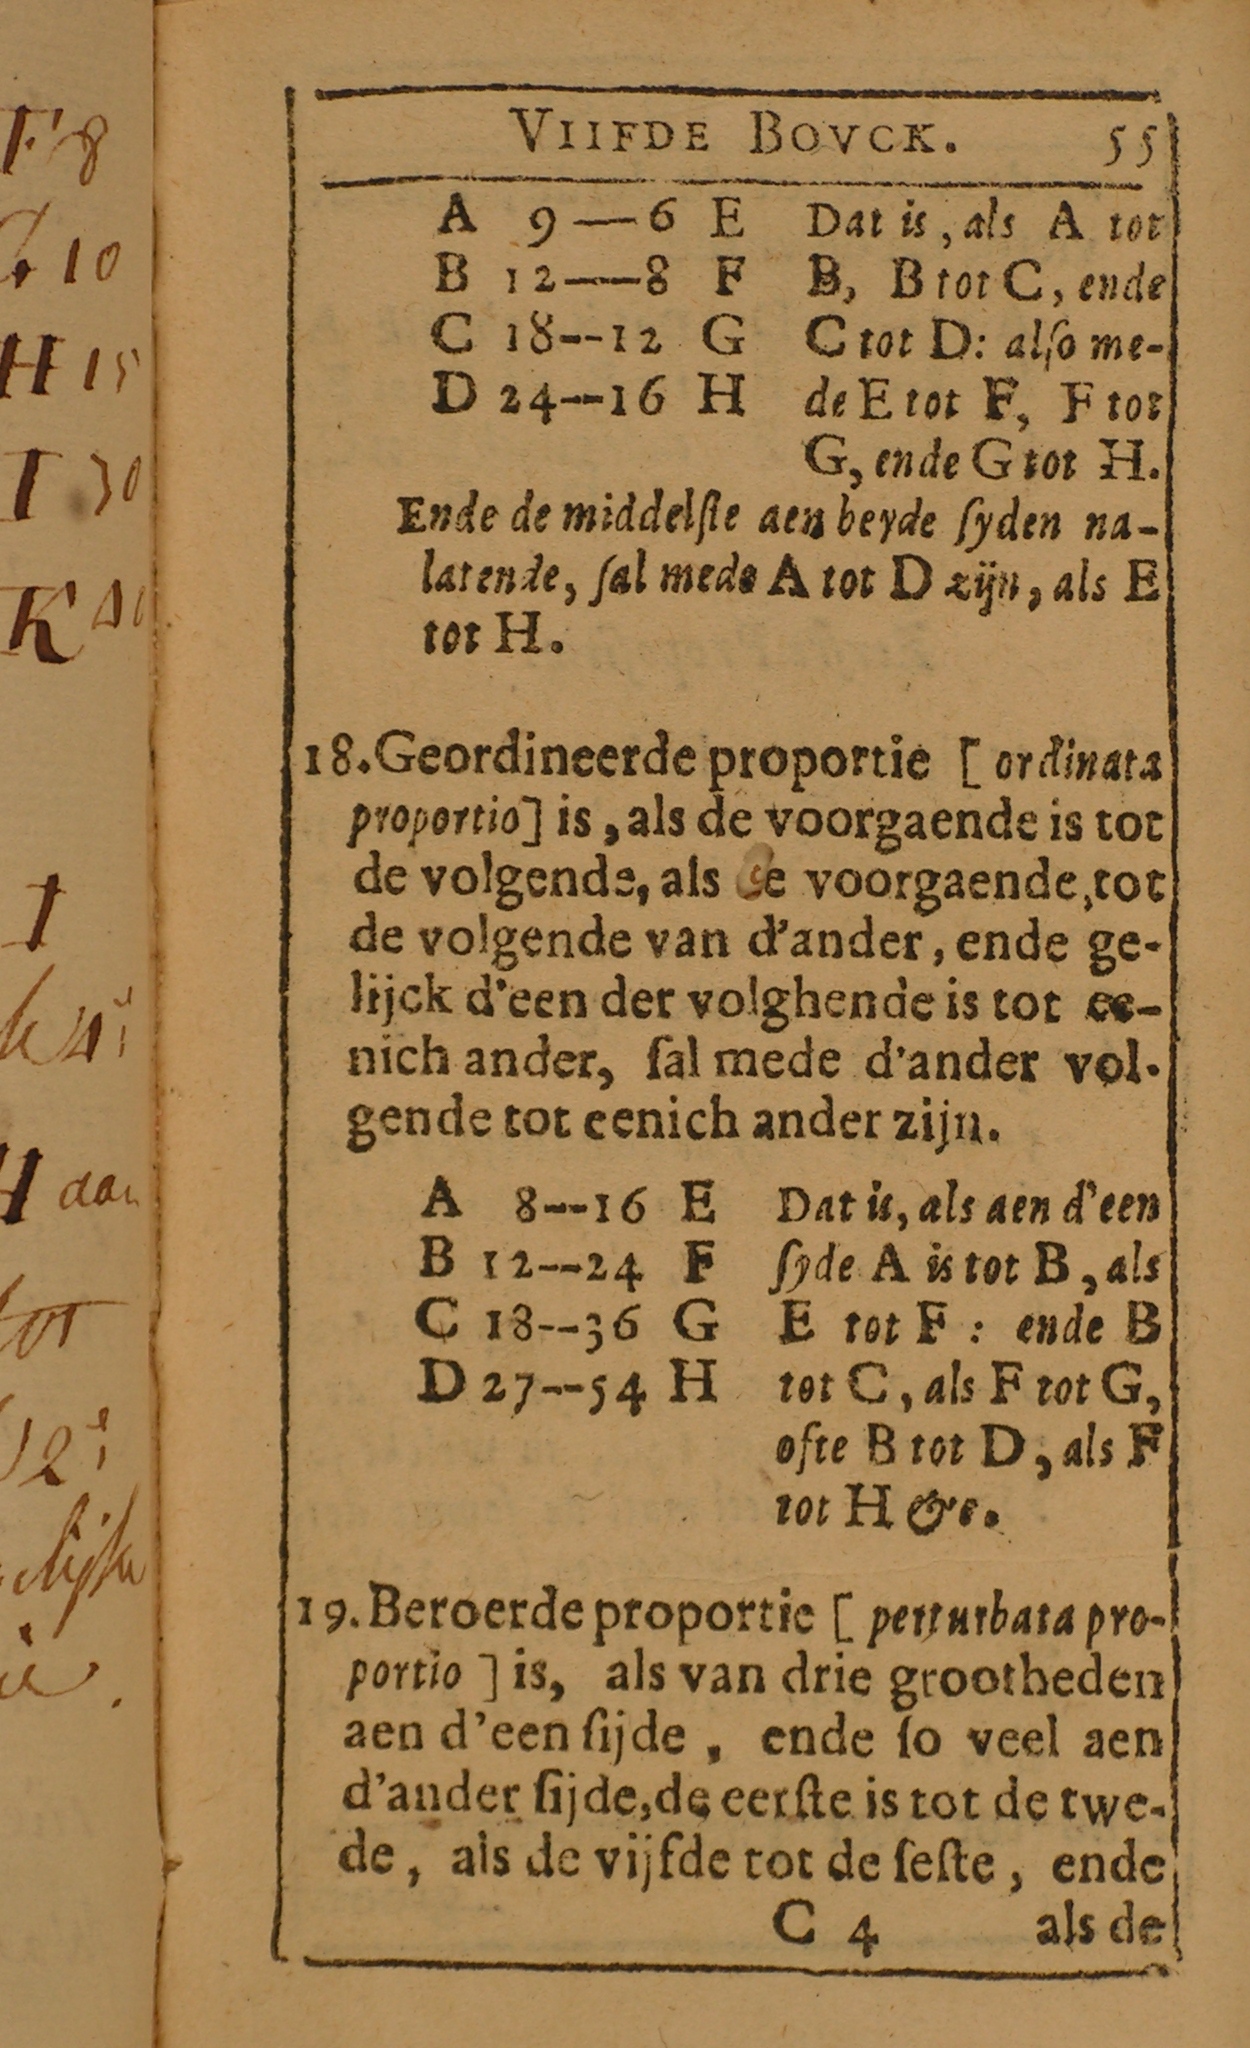 F 8
10
H 15
I 30
K 40
I
H aan
tot
VIIFDE BOVCK. 55
A 9—6 E Dat is, als A tot
B 12—8 F B, B tot C, ende
C 18--12 G C tot D: alſo me-
D 24--16 H de E tot F, F tot
G, ende G tot H.
Ende de middelſte aen beyde ſyden na-
latende, ſal mede A tot D zijn, als E
tot H.
18. Geordineerde proportie [ ordinata
proportio] is, als de voorgaende is tot
de volgende, als de voorgaende, tot
de volgende van d'ander, ende ge-
lijck d'een der volghende is tot ee-
nich ander, ſal mede d'ander vol-
gende tot eenich ander zijn.
A 8--16 E Dat is, als aen d'een
B 12--24 F ſyde A is tot B, als
C 18--36 G E tot F : ende B
D 27--54 H tot C, als F tot G,
ofte B tot D, als F
tot H &c.
19. Beroerde proportie [ perturbata pro-
portio ] is, als van drie grootheden
aen d'een ſijde, ende ſo veel aen
d'ander ſijde, de eerſte is tot de twe-
de, als de vijfde tot de ſeſte, ende
C 4 als de